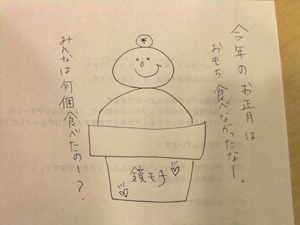 今年のお正月は
おもち食べなかったなー。
鏡モチ
みんなは何個食べたのー?